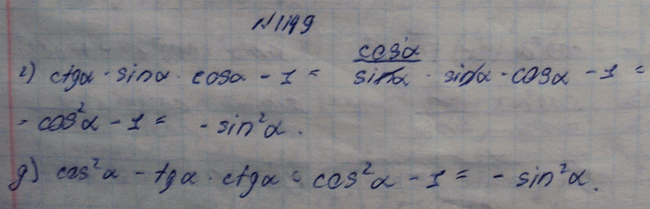 №1149
г) ctgα · sinα · cosα - 1 = cosα/sinα · sinα · cosα - 1 =
= cos²α - 1 = - sin²α.
д) cos²α - tgα · ctgα = cos²α - 1 = - sin²α.